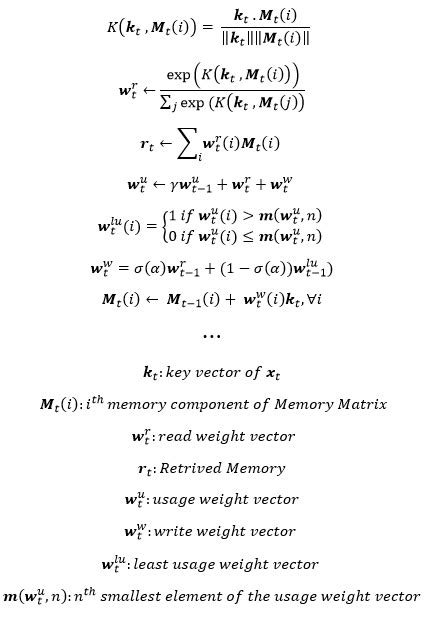 K(k_t , M_t(i)) = k_t . M_t(i) / ‖k_t‖‖M_t(i)‖
w_t^r ← exp(K(k_t , M_t(i))) / ∑_j exp (K(k_t , M_t(j))
r_t ← ∑_i w_t^r(i)M_t(i)
w_t^u ← γw_{t−1}^u + w_t^r + w_t^w
w_t^{lu}(i) = {1 if w_t^u(i) > m(w_t^u, n)
0 if w_t^u(i) ≤ m(w_t^u, n)
w_t^w = σ(α)w_{t−1}^r + (1 − σ(α))w_{t−1}^{lu})
M_t(i) ← M_{t−1}(i) + w_t^w(i)k_t, ∀i
...
k_t: key vector of x_t
M_t(i): i^{th} memory component of Memory Matrix
w_t^r: read weight vector
r_t: Retrived Memory
w_t^u: usage weight vector
w_t^w: write weight vector
w_t^{lu}: least usage weight vector
m(w_t^u, n): n^{th} smallest element of the usage weight vector